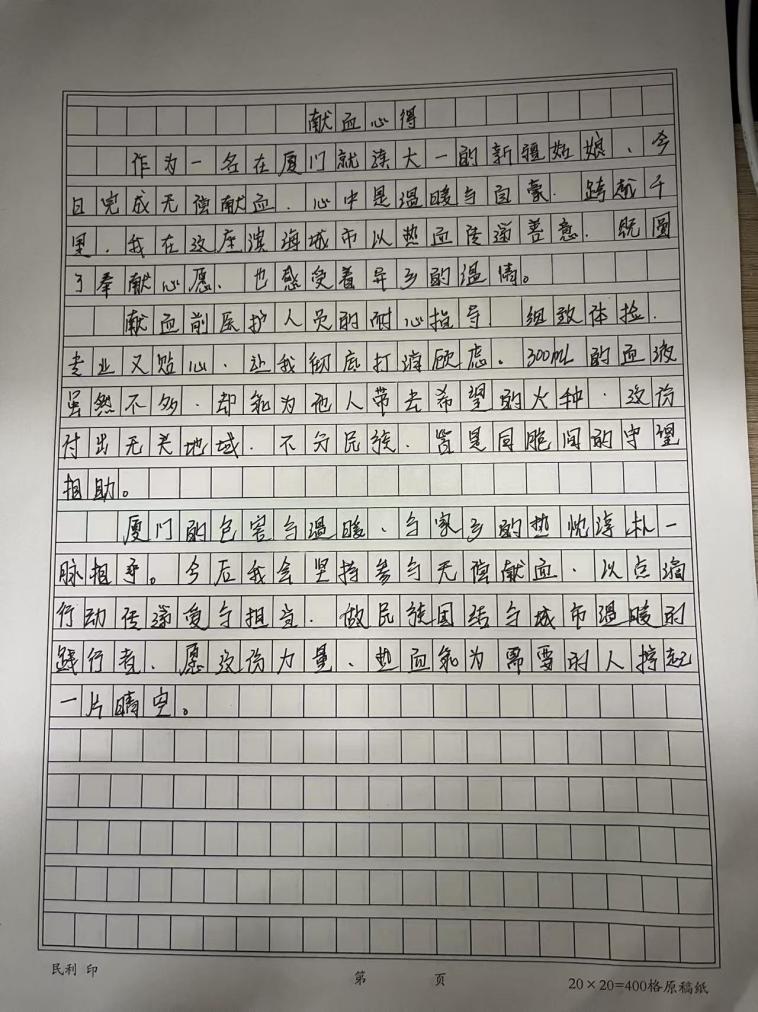 献血心得
作为一名在厦门就读大一的新疆姑娘、今
日完成无偿献血、心中是温暖与自豪．跨越千
里、我在这座滨海城市以热血传递善意．既圆
了奉献心愿、也感受着异乡的温情。
献血前医护人员的耐心指导、细致体检．
专业又贴心、让我彻底打消顾虑。300mL的血液
虽然不多．却能为他人带去希望的火种．这份
付出无关地域．不分民族．皆是同胞间的守望
相助。
厦门的包容与温暖、与家乡的热忱淳朴一
脉相承。今后我会坚持参与无偿献血．以点滴
行动传递爱与担当．做民族团结与城市温暖的
践行者、愿这份力量、热血能为需要的人撑起
一片晴空。
民利 印
第 页
20×20=400格原稿纸